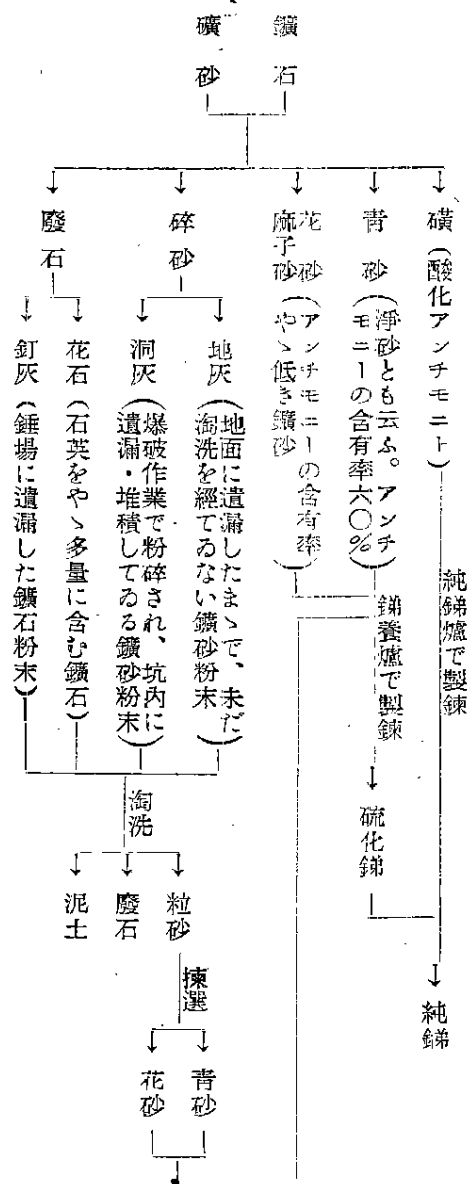 鑛石
礦砂
磺（酸化アンチモニト）
純銻爐で製錬
純銻
青砂（淨砂とも云ふ。アンチ
モニーの含有率六〇％）
銻養爐で製錬
硫化銻
花砂
麻子砂
（アンチモニーの含有率
やゝ低き鑛砂）
碎砂
地灰（地面に遺漏したまゝで、未だ
淘洗を經てゐない鑛砂粉末）
洞灰（爆破作業で粉碎され、坑内に
遺漏・堆積してゐる鑛砂粉末）
廢石
花石（石英をやゝ多量に含む鑛石）
釘灰（錘場に遺漏した鑛石粉末）
淘洗
粒砂
廢石
泥土
揀選
青砂
花砂